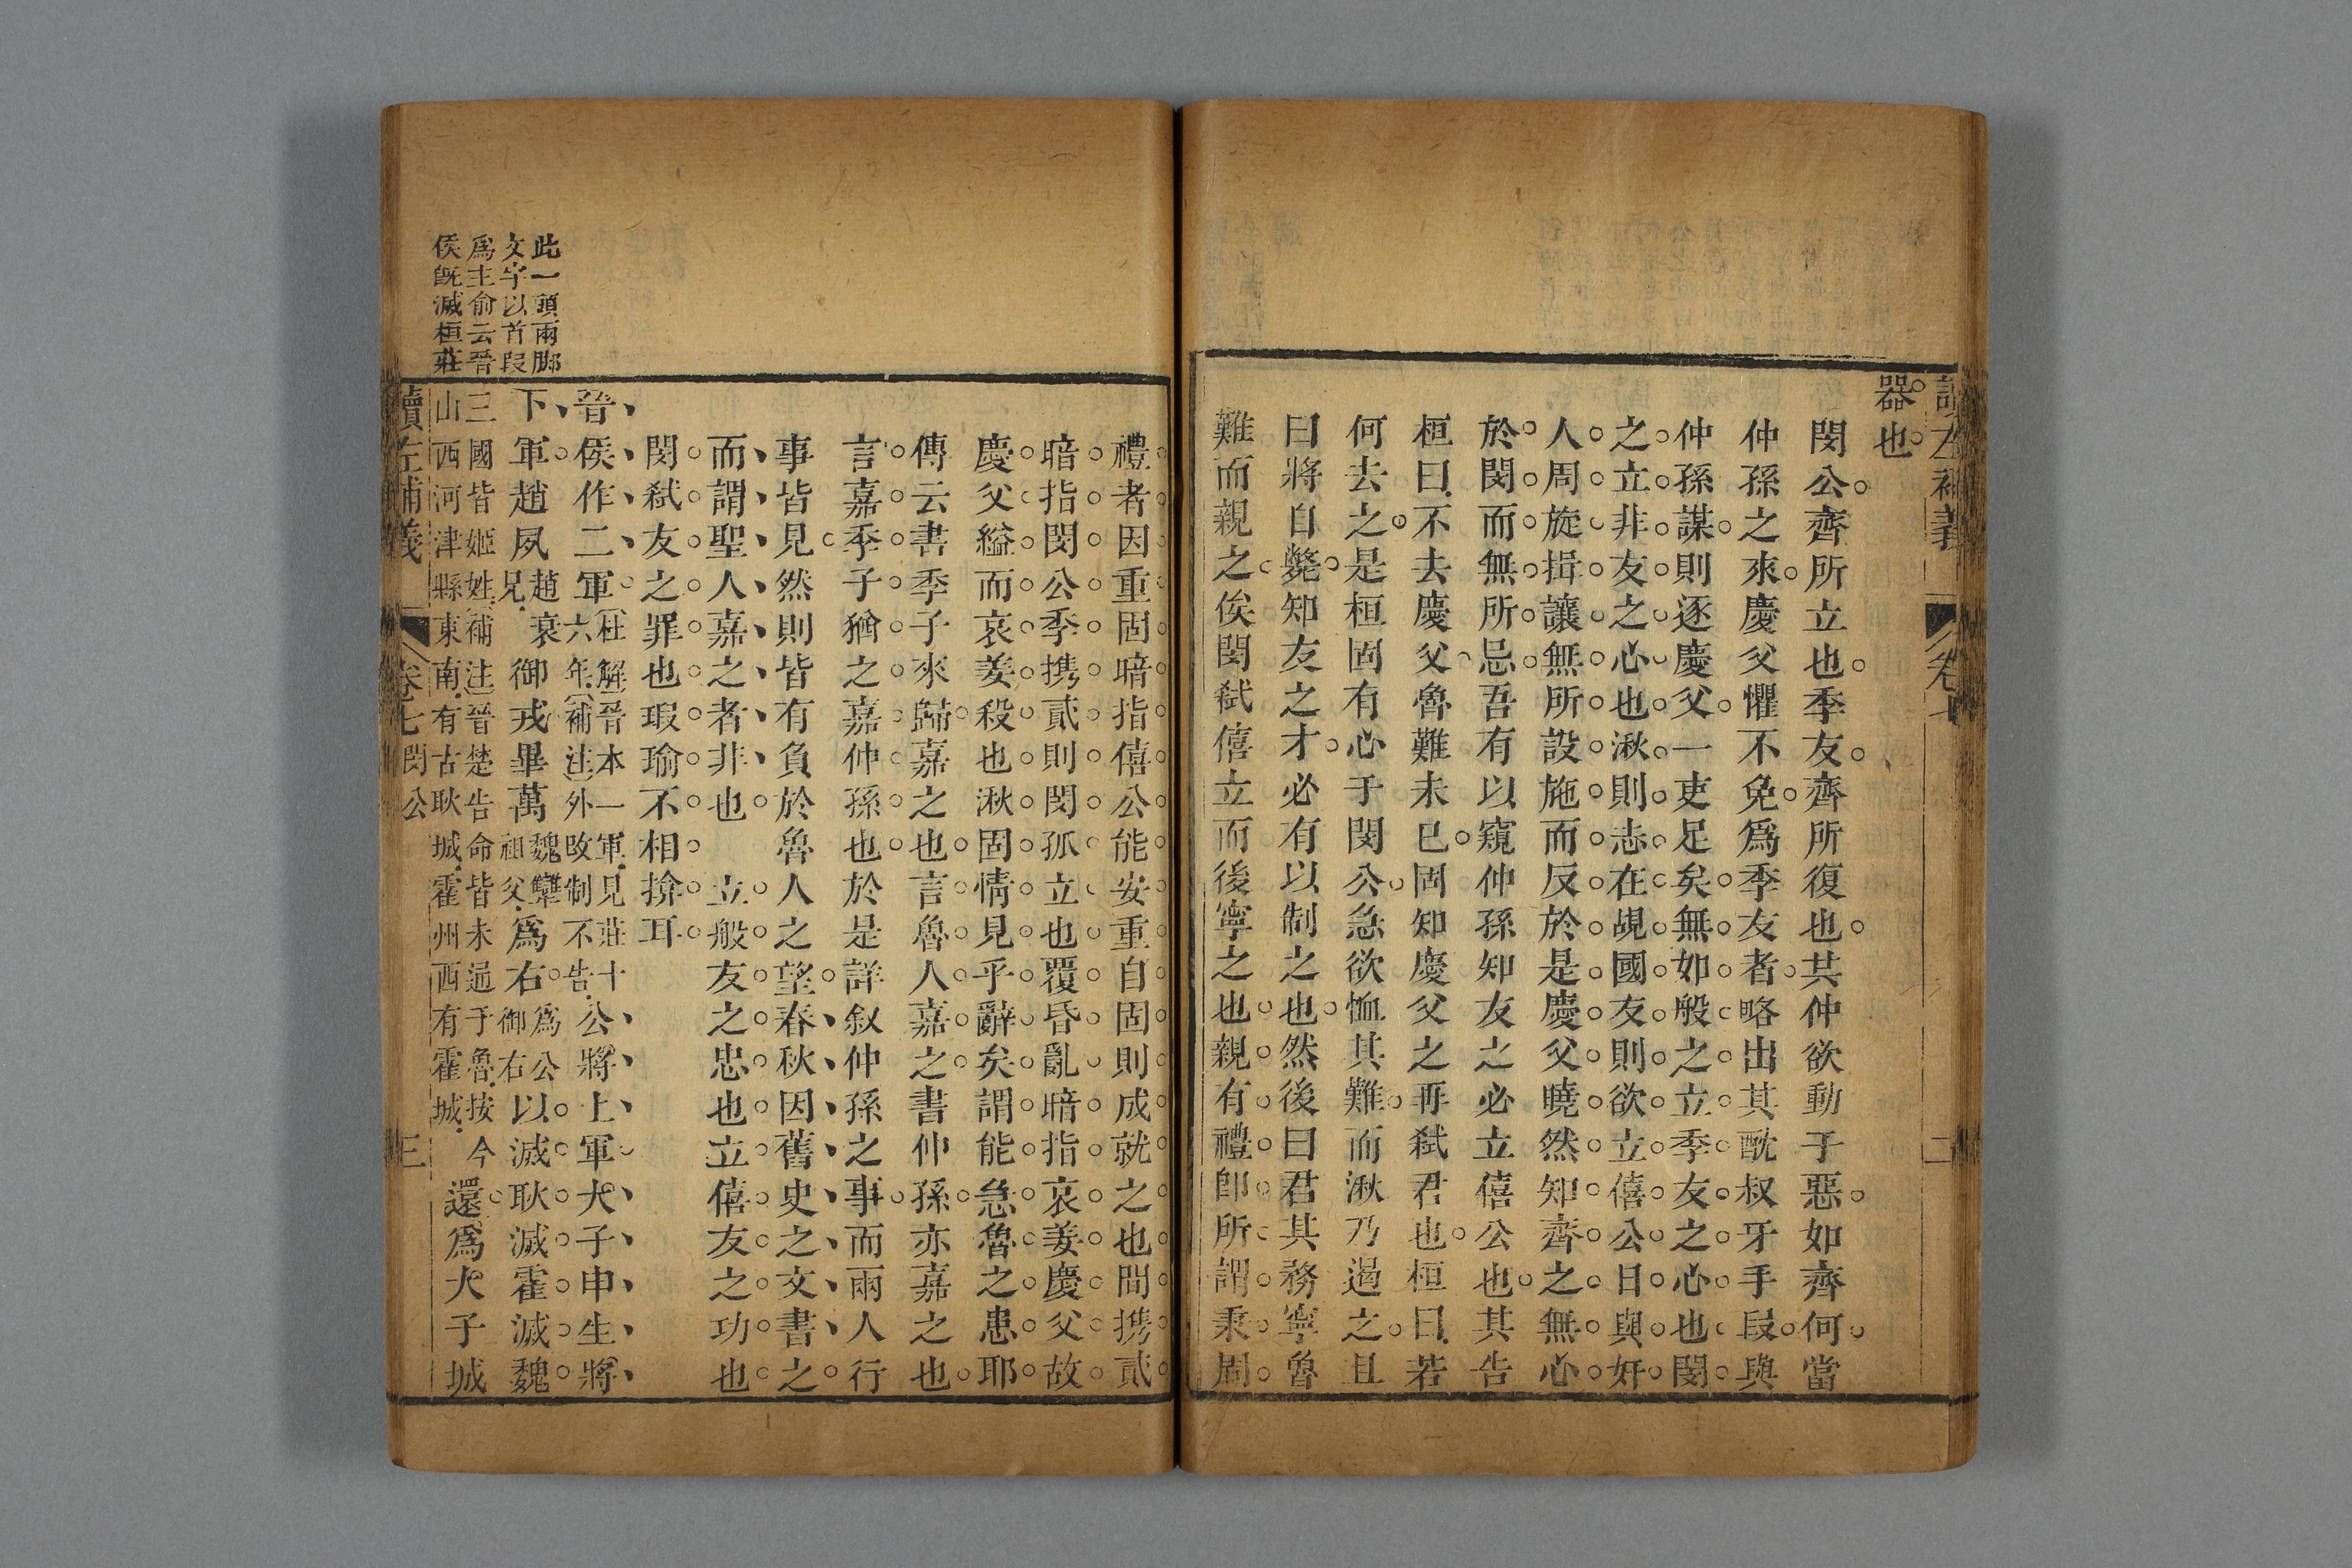 讀左補義
卷七
二
器也
閔公齊所立也季友齊所復也其仲欲動于惡如齊何當
仲孫之來慶父懼不免爲季友者略出其酖叔牙手段與
仲孫謀則逐慶父一吏足矣無如般之立季友之心也閔
之立非友之心也湫則志在覘國友則欲立僖公日與奸
人周旋揖讓無所設施而反於是慶父曉然知齊之無心
於閔而無所忌吾有以窺仲孫知友之必立僖公也其告
桓曰不去慶父魯難未已固知慶父之再弒君也桓曰若
何去之是桓固有心于閔公急欲恤其難而湫乃遏之且
曰將自斃知友之才必有以制之也然後曰君其務寧魯
難而親之俟閔弒僖立而後寧之也親有禮卽所謂秉周
禮者因重固暗指僖公能安重自固則成就之也間攜貳
暗指閔公季攜貳則閔孤立也覆昏亂暗指哀姜慶父故
慶父縊而哀姜殺也湫固情見乎辭矣謂能急魯之患耶
傳云書季子來歸嘉之也言魯人嘉之書仲孫亦嘉之也
言嘉季子猶之嘉仲孫也於是詳叙仲孫之事而兩人行
事皆見然則皆有負於魯人之望春秋因舊史之文書之
而謂聖人嘉之者非也 立般友之忠也立僖友之功也
閔弒友之罪也瑕瑜不相揜耳
此一頭兩脚
文字以首段
爲主俞云晉
侯旣滅桓莊
晉侯作二軍
杜解晉本一軍見莊十
六年補注外改制不告
公將上軍大子申生將
下軍趙夙
趙衰
兄
御戎畢萬
魏犨
祖父
爲右
爲公
御右
以滅耿滅霍滅魏
三國皆姬姓補注晉楚告命皆未通于魯按今
山西河津縣東南有古耿城霍州西有霍城
還爲大子城
讀左補義
卷七
閔公
三